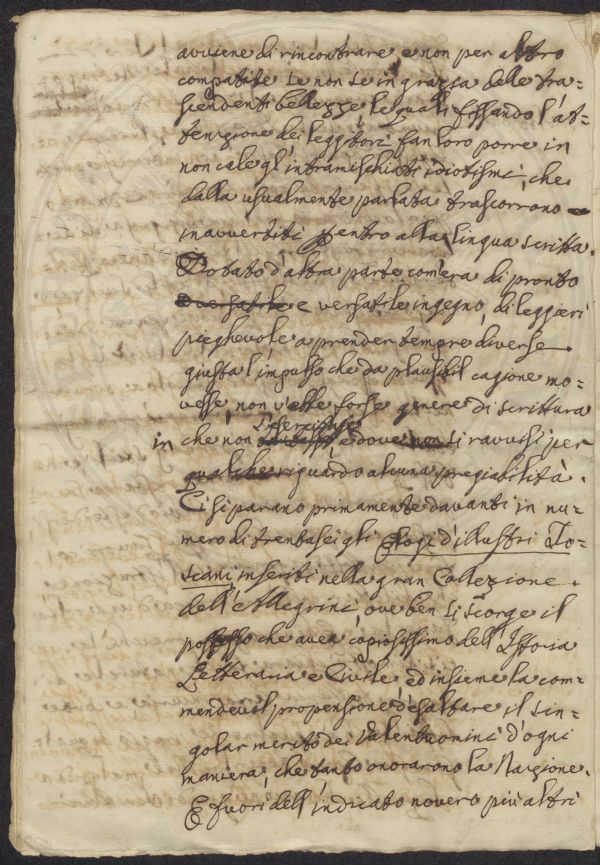 avviene di rincontrare e non per altro
compatite se non se in grazia delle tra=
scendenti bellezze le quali fissando l'at=
tenzione dei leggitori fan loro porre in
non cale gl'intramischiati idiotismi, che
dalla usualmente parlata trascorrono
inavvertiti entro alla lingua scritta.
Dotato d'altra parte com'era di pronto
e versatile ingegno, di leggieri
pieghevole a prender tempre diverse
giusta l'impulso che da plausibil cagione mo=
vesse, non v'ebbe forse genere di scrittura
in che non e dove non si ravvisi per
qualche riguardo alcuna pregiabilità.
Ci si parano primamente davanti in nu=
mero di trentasei gli Elogi d'illustri To=
scani, inseriti nella gran Collezione
dell'Allegrini, ove ben si scorge il
possesso che avea copiosissimo dell'Istoria
Letteraria e Civile, ed insieme la com=
mendevol propensione d'esaltare il sin=
golar merito dei valentuomini d'ogni
maniera, che tanto onorarono la Nazione.
E fuori dell'indicato novero più altri